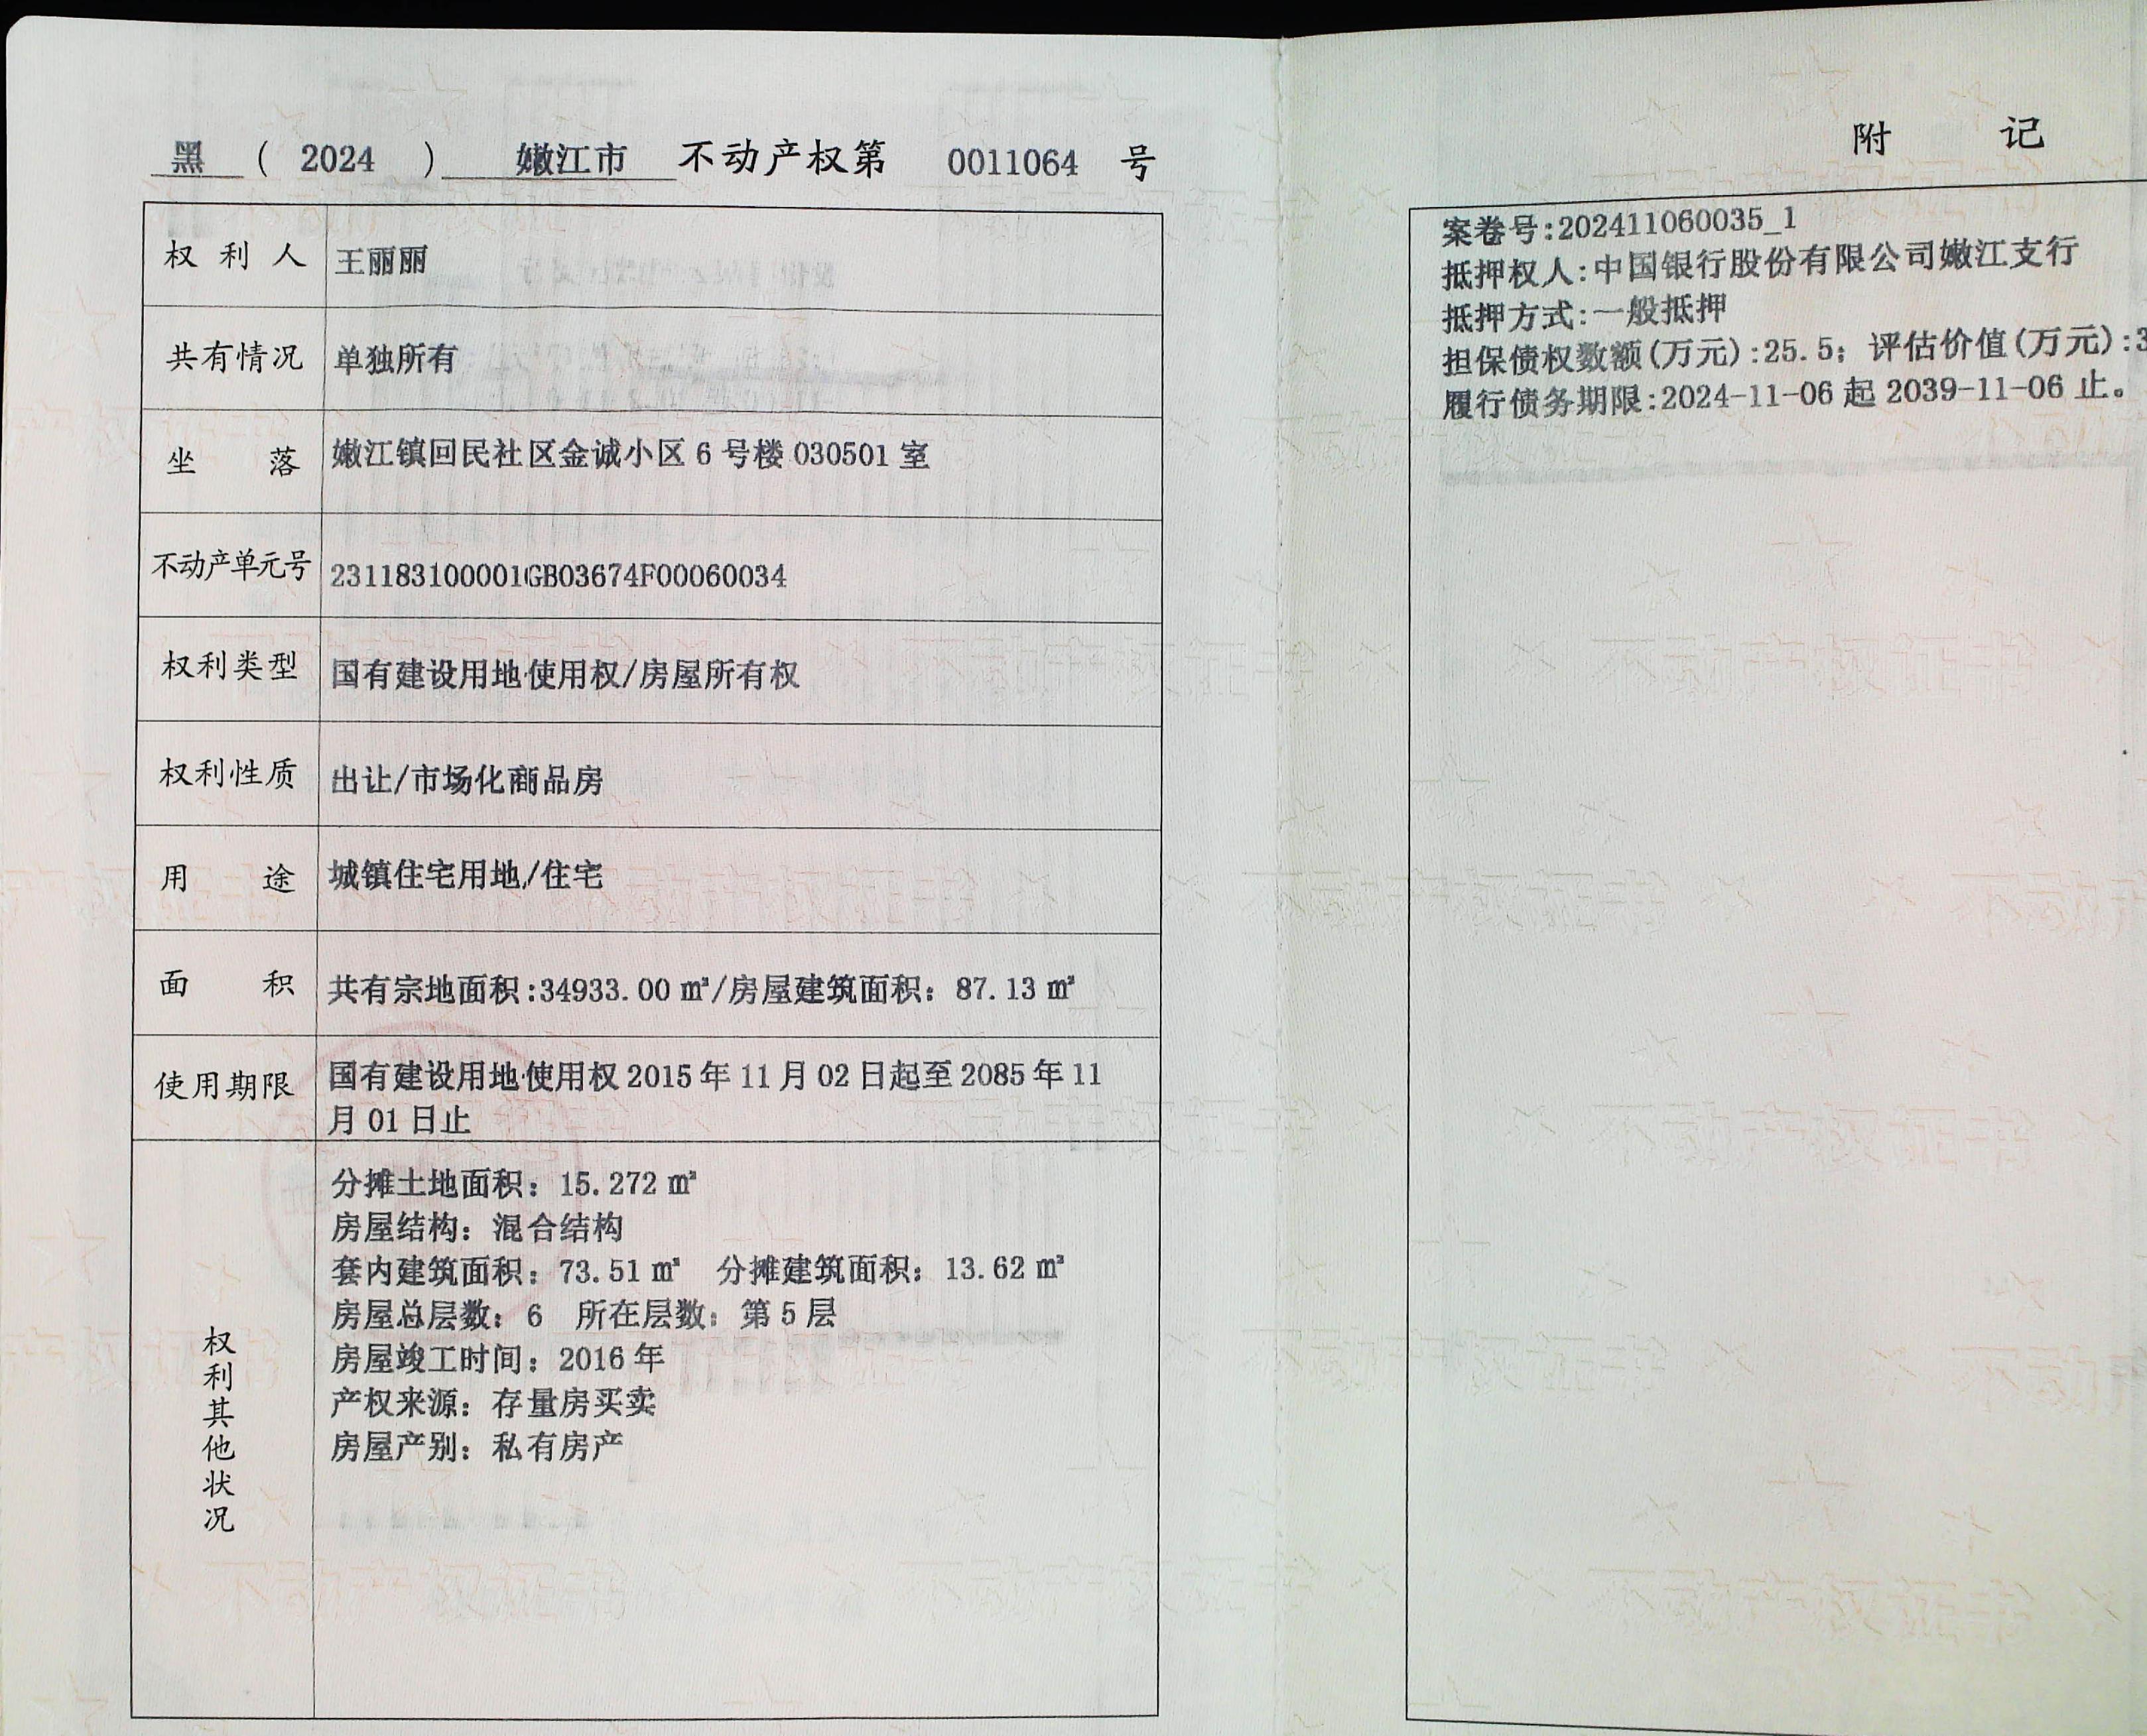 黑 ( 2024 ) 嫩江市 不动产权第 0011064 号
权利人 王丽丽
共有情况 单独所有
坐落 嫩江镇回民社区金诚小区 6 号楼 030501 室
不动产单元号 231183100001GB03674F00060034
权利类型 国有建设用地使用权/房屋所有权
权利性质 出让/市场化商品房
用途 城镇住宅用地/住宅
面积 共有宗地面积:34933.00 ㎡/房屋建筑面积：87.13 ㎡
使用期限 国有建设用地使用权 2015 年 11 月 02 日起至 2085 年 11
月 01 日止
权利其他状况
分摊土地面积：15.272 ㎡
房屋结构：混合结构
套内建筑面积：73.51 ㎡ 分摊建筑面积：13.62 ㎡
房屋总层数：6 所在层数：第 5 层
房屋竣工时间：2016 年
产权来源：存量房买卖
房屋产别：私有房产
附记
案卷号:202411060035_1
抵押权人:中国银行股份有限公司嫩江支行
抵押方式:一般抵押
担保债权数额(万元):25.5；评估价值(万元):3
履行债务期限:2024-11-06 起 2039-11-06 止。